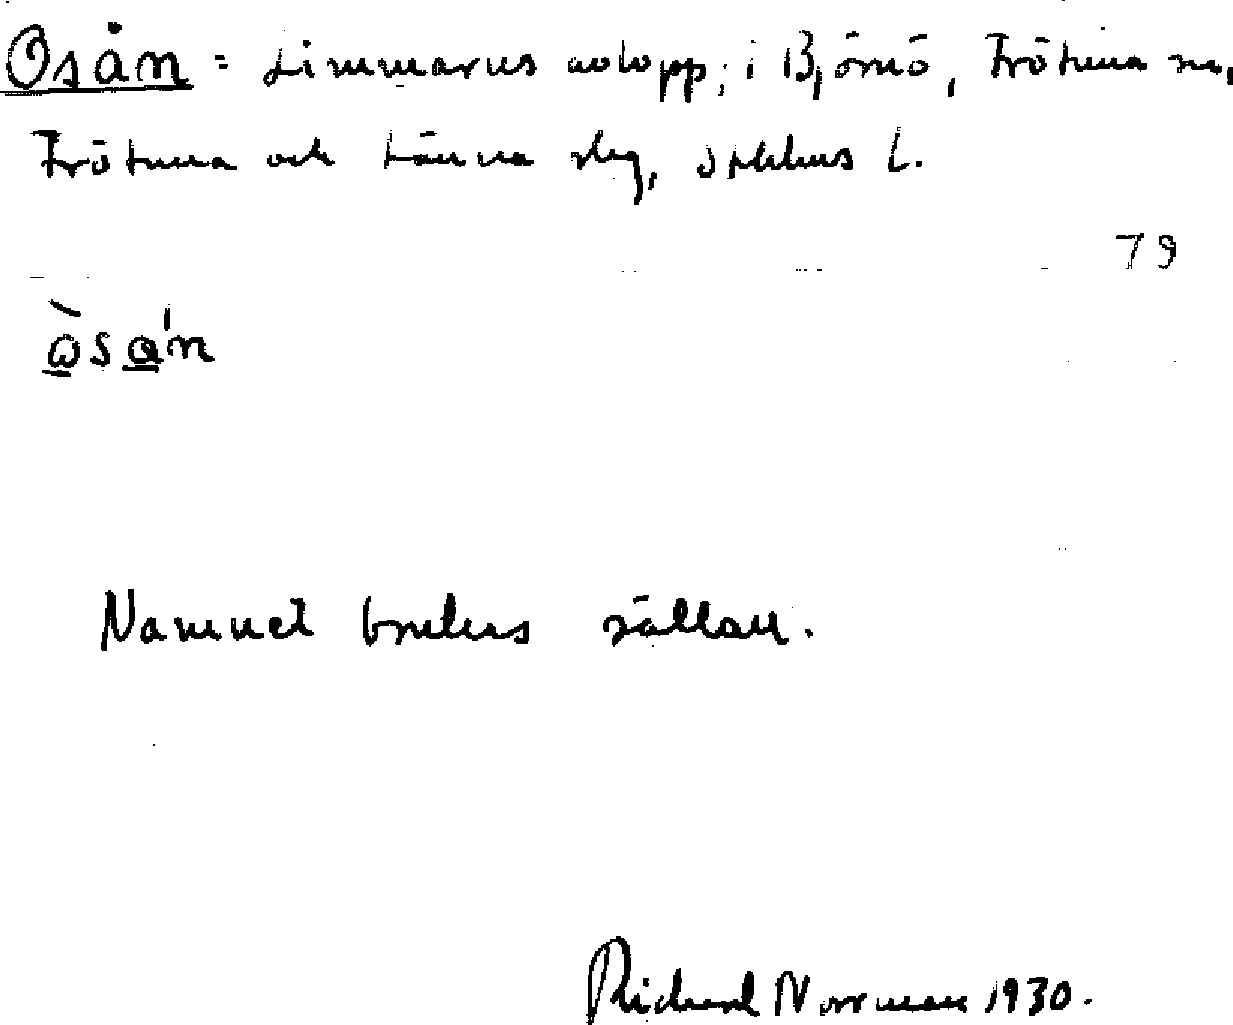 Osån = Limmarens avlopp, i Björnö, Frötuna sn,
Frötuna och Länna slg, Sthlms l.
79
ò̱sa̱'n
Namnet brukas sällan.
Richard Norrman 1930.